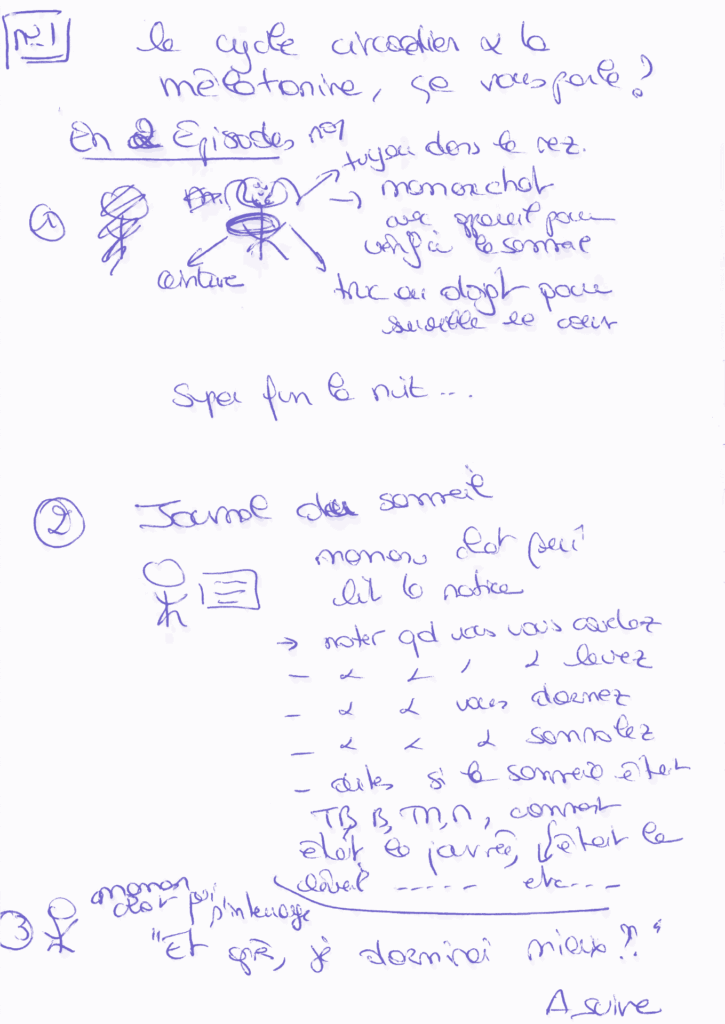 n°1
le cycle circadien & la
mélatonine, ça vous parle?
En 2 Episodes n°1
tuyau dans le nez.
①
mamanchat
avec appareil pour
vérifier le sommeil
ceinture
truc au doigt pour
surveiller le cœur
Super fun la nuit...
② Journal du sommeil
maman chat
lit la notice
→ noter qd vous vous couchez
- & & , & levez
- & & vous dormez
- & & & somnolez
- dites si le sommeil était
TB, B, M, comment
était la journée, était le
réveil ..... etc...
③ maman
chat
"Et après, je dormirai mieux?"
A suivre